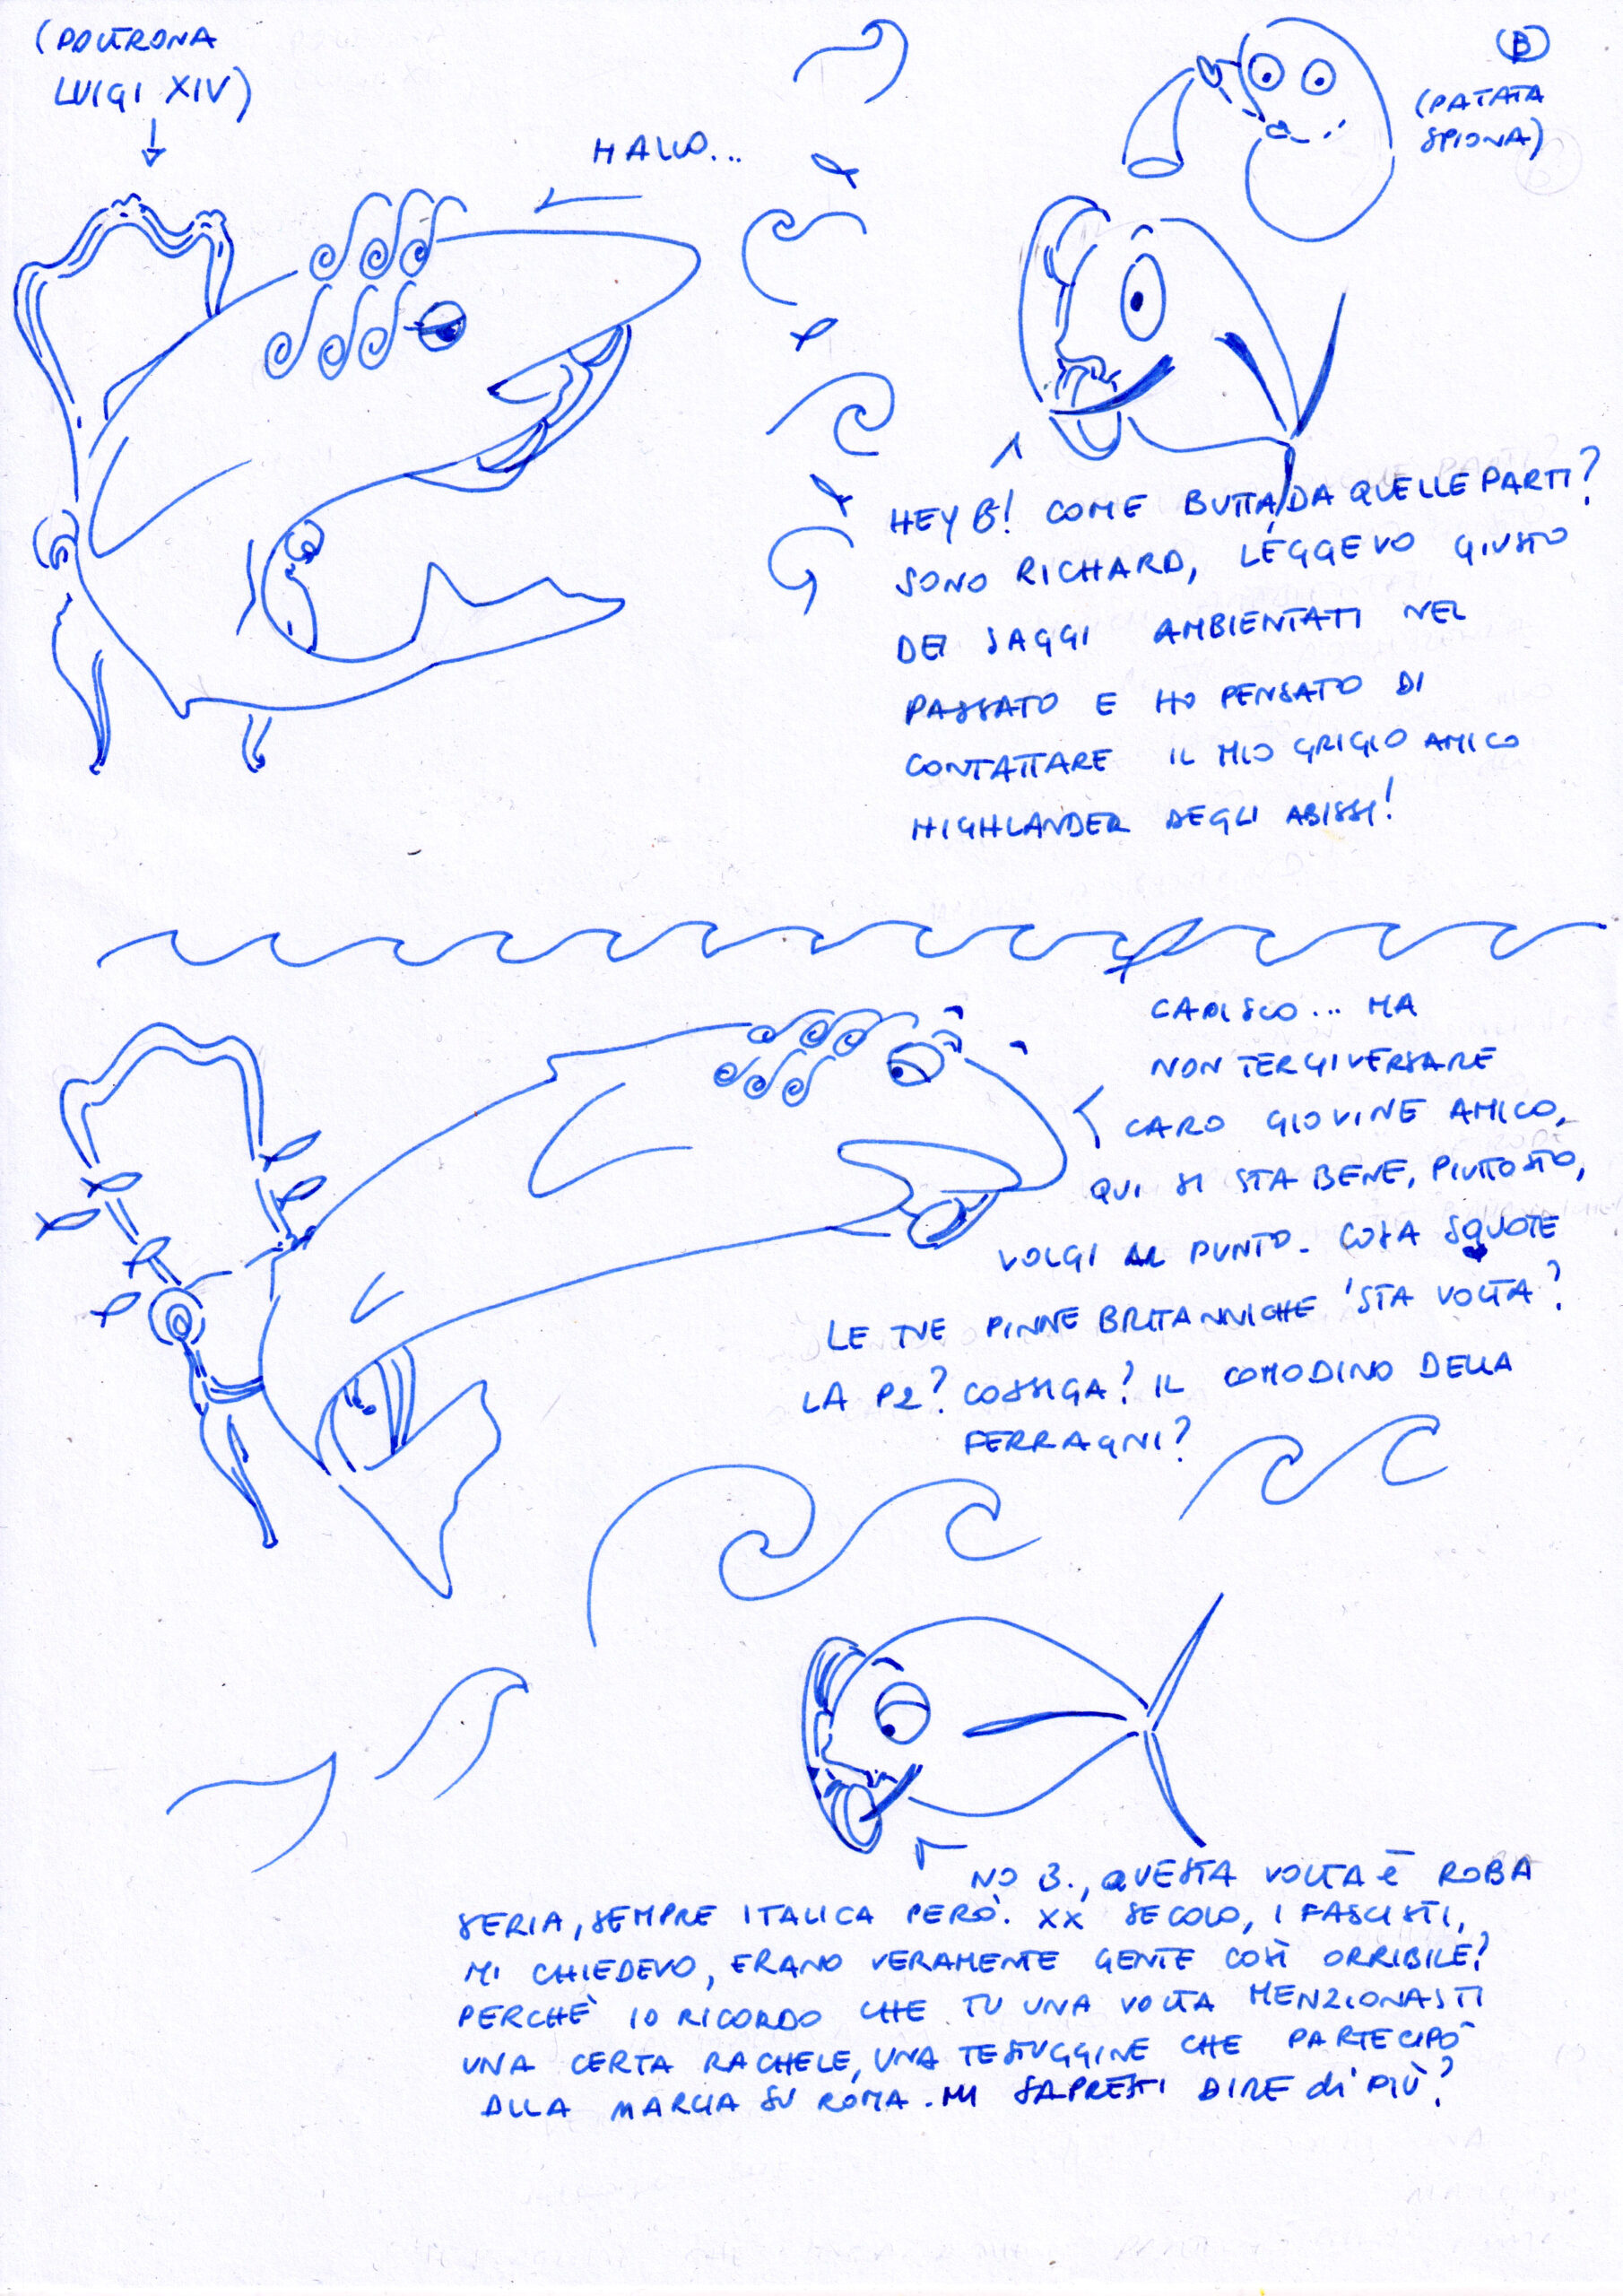 (POLTRONA
LUIGI XIV)
HALLO...
B
(PATATA
SPIONA)
HEY B! COME BUTTA DA QUELLE PARTI?
SONO RICHARD, LEGGEVO GIUSTO
DEI SAGGI AMBIENTATI NEL
PASSATO E HO PENSATO DI
CONTATTARE IL MIO GRIGIO AMICO
HIGHLANDER DEGLI ABISSI!
CAPISCO... MA
NON TERGIVERSARE
CARO GIOVINE AMICO,
QUI SI STA BENE, PIUTTOSTO,
VOLGI AL PUNTO. COSA SQUOTE
LE TUE PINNE BRITANNICHE 'STA VOLTA?
LA P2? COSSIGA? IL COMODINO DELLA
FERRAGNI?
NO B., QUESTA VOLTA È ROBA
SERIA, SEMPRE ITALICA PERÒ. XX SECOLO, I FASCISTI,
MI CHIEDEVO, ERANO VERAMENTE GENTE COSÌ ORRIBILE?
PERCHÈ IO RICORDO CHE TU UNA VOLTA MENZIONASTI
UNA CERTA RACHELE, UNA TESTUGGINE CHE PARTECIPÒ
ALLA MARCIA SU ROMA. MI SAPRESTI DIRE di PIÙ?